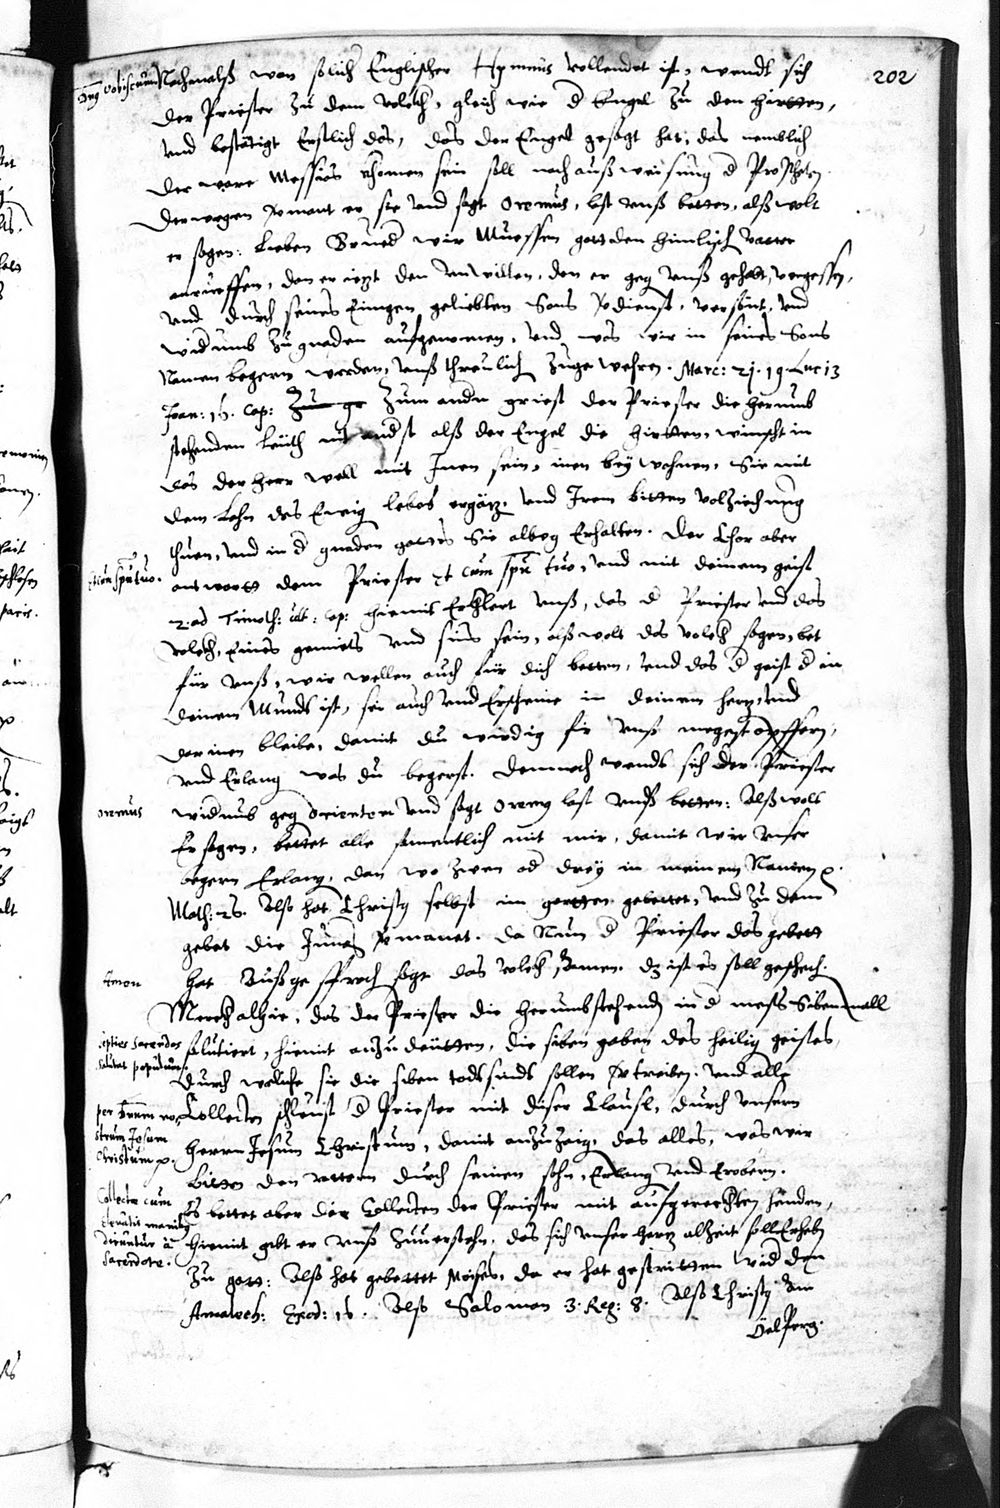 202
Dns vobiscum Nachmalß wan solich Englischer Hymnus vollendet ist, wendt sich
der Priester zu dem volckh, gleich wie d Engel zu den hirtten,
und bestätigt Erstlich das, das der Engel gesagt hat, das nemblich
der ware Messias khomen sein soll nach außweisung d Propheten.
Derwegen vermant er sie und sagt Oremus, last unß betten, alß wolt
er sagen: Lieben Brueder wir Muessen gott den himlisch vatter
anrueffen, den er iezt den unwillen, den er geg unß gehabt, vergessen,
und durch seines Einigen geliebten Sons verdienst, versönt, und
widumb zu gnaden aufgenomen, und was wir in seines Sons
Namen begern werden, unß threulich zuge
Marc: 11. 19. Luc 13
Joan: 16. Cap: Zum andn griest der Priester die herumb
stehenden Leüth nit andst alß der Engel die hirtten, winscht in
das der herr well mit Inen sein, inen bey wohnen, Sie mit
dem Lohn des Ewig lebes ergäz, und Irem bitten volziehung
thuen, und in d gnaden gottes Sie albeg Erhalten. Der Chor aber
Et cum spu tuo.
antwortt dem Priester Et cum spu tuo, und mit deinem geist
2. ad Timoth: ult: cap: hiemit Erklert unß, das d Priester und das
volckh, Eines gemiets und sins sein, alß wolt das volckh sagen, bet
für unß, wir wellen auch für dich betten, und das d geist d in
deinem Munds ist, sei auch und Erscheine in deinem herz, und
darinen bleibe, damit du wirdig fir unß megest opffern,
und Erlang was du begerst. Demnach wends sich der Priester
oremus
widumb geg Orientem und sagt Orem last unß betten: Alß wolt
Er sagen, bettet alle samentlich mit mir, damit wir unser
begern Erlang, dan wo zwen od drey in meinem Namen p.
Math: 26. Also hat Christus selbst im gartten gebettet, und zu dem
gebet die Junger vermanet. Da Nun d Priester das gebett
Amen
hat Außgesproch sagt das volckh Amen. dz ist es soll gescheh.
Merckh alhie, das der Priester die herumbstehend in d mess Sibenmall
septies sacerdos
salutat populum.
salutiert, hiemit anzudeütten, die siben gaben des heilig geistes,
durch welche sie die siben todtsinds sollen vertreiben. Und alle
per Dnum no
strum Jesum
Christum p.
Collecten schleust d Priester mit diser Clausl, durch unsern
herrn Jesum Christum, damit anzuzaig, das alles, was wir
bitten den vattern durch seinen sohn, Erlang und Erobern.
Collectae cum
elevatis manib
dicuntur à
Sacerdote.
Es bettet aber die Collecten der Priester mit aufgereckhten henden,
hiemit gibt er unß zuuerstehn, das sich unser herz alzeit soll Erheben
Zu gott: Also hat gebettet Moises, da er hat gestritten wid den
Amalech: Exod: 16. Also Salomon 3. Reg: 8. Also Christus Am
Öelperg.